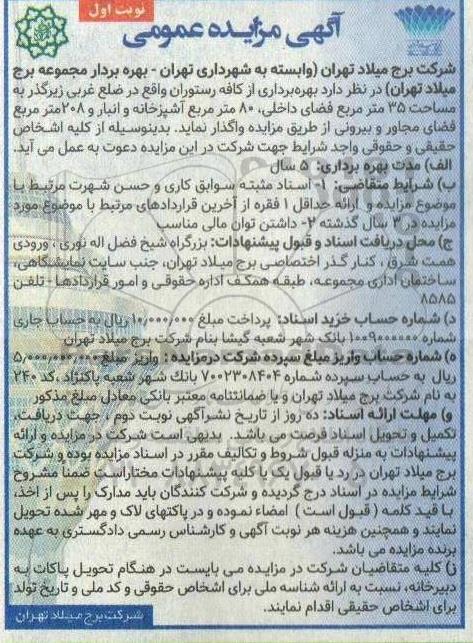 نوبت اول
آگهی مزایده عمومی
شرکت برج میلاد تهران (وابسته به شهرداری تهران - بهره بردار مجموعه برج
میلاد تهران) در نظر دارد بهره‌برداری از کافه رستوران واقع در ضلع غربی زیرگذر به
مساحت ۳۵ متر مربع فضای داخلی، ۸۰ متر مربع آشپزخانه و انبار و ۲۰۸متر مربع
فضای مجاور و بیرونی از طریق مزایده واگذار نماید. بدینوسیله از کلیه اشخاص
حقیقی و حقوقی واجد شرایط جهت شرکت در این مزایده دعوت به عمل می آید.
الف) مدت بهره برداری: ۵ سال
ب) شرایط متقاضی: ۱- اسناد مثبته سوابق کاری و حسن شهرت مرتبط با
موضوع مزایده و ارائه حداقل ۱ فقره از آخرین قراردادهای مرتبط با موضوع مورد
مزایده در ۳ سال گذشته ۲- داشتن توان مالی مناسب
ج) محل دریافت اسناد و قبول پیشنهادات: بزرگراه شیخ فضل اله نوری ، ورودی
همت شرق ، کنار گذر اختصاصی برج میلاد تهران، جنب سایت نمایشگاهی،
ساختمان اداری مجموعه، طبقه همکف اداره حقوقی و امور قراردادها - تلفن
۸۵۸۵
د) شماره حساب خرید اسناد: پرداخت مبلغ ۱۰/۰۰۰/۰۰۰ ریال به حساب جاری
شماره ۱۰۰۹۰۰۰۰۰۰ بانک شهر شعبه گیشا بنام شرکت برج میلاد تهران
ه) شماره حساب واریز مبلغ سپرده شرکت درمزایده : واریز مبلغ ۵/۰۰۰/۰۰۰/۰۰۰
ریال به حساب سپرده شماره ۷۰۰۲۳۰۸۴۰۴ بانک شهر شعبه پاکنژاد ، کد ۲۴۰
به نام شرکت برج میلاد تهران و یا ضمانتنامه معتبر بانکی معادل مبلغ مذکور
و) مهلت ارائه اسناد: ده روز از تاریخ نشرآگهی نوبت دوم ، جهت دریافت،
تکمیل و تحویل اسناد فرصت می باشد. بدیهی است شرکت در مزایده و ارائه
پیشنهادات به منزله قبول شروط و تکالیف مقرر در اسناد مزایده بوده و شرکت
برج میلاد تهران در رد یا قبول یک یا کلیه پیشنهادات مختاراست ضمنا مشروح
شرایط مزایده در اسناد درج گردیده و شرکت کنندگان باید مدارک را پس از اخذ،
با قید کلمه ( قبول است ) امضاء نموده و در پاکتهای لاک و مهر شده تحویل
نمایند و همچنین هزینه هر نوبت آگهی و کارشناس رسمی دادگستری به عهده
برنده مزایده می باشد.
ز) کلیه متقاضیان شرکت در مزایده می بایست در هنگام تحویل پاکات به
دبیرخانه، نسبت به ارائه شناسه ملی برای اشخاص حقوقی و کد ملی و تاریخ تولد
برای اشخاص حقیقی اقدام نمایند.
شرکت برج میلاد تهران